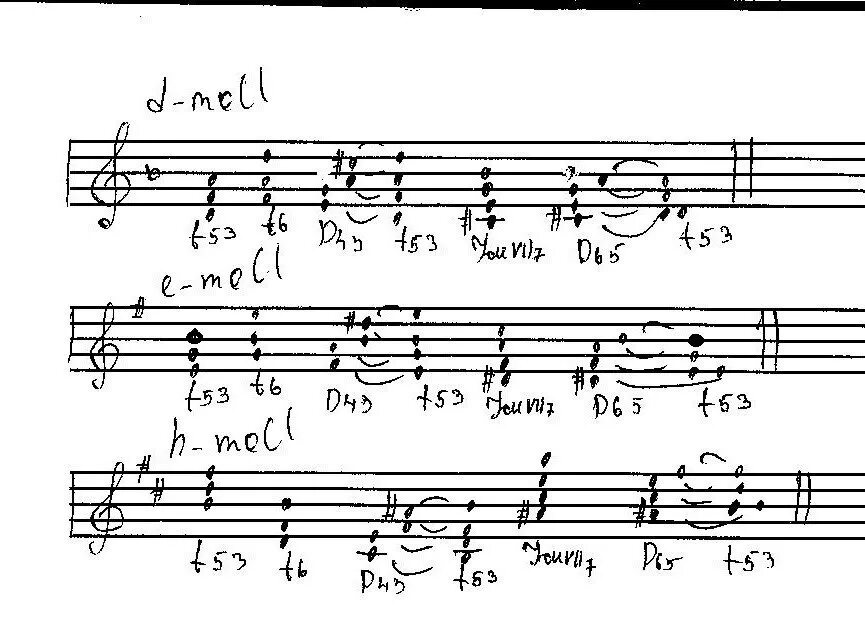 d-moll
t53 t6 D43 t53 УмVII7 D65 t53
e-moll
t53 t6 D43 t53 УмVII7 D65 t53
h-moll
t53 t6 D43 t53 УмVII7 D65 t53